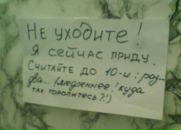 Не уходите!
Я сейчас приду.
Считайте до 10-и: раз-
два... (медленнее! куда
так торопитесь?!)